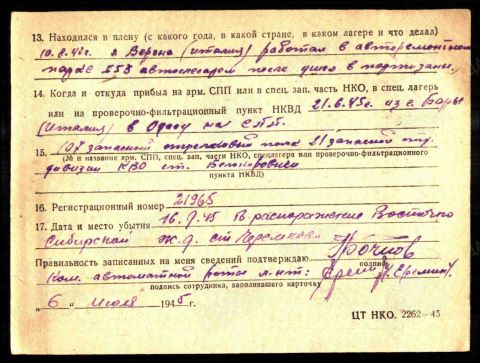 13. Находился в плену (с какого года, в какой стране, в каком лагере и что делал)
г Верона (италия) работал в авторемонтном
парке 553 автослесарем после ушел в партизаны.
14. Когда и откуда прибыл на арм. СПП или в спец. зап. часть НКО, в спец. лагерь
или на проверочно-фильтрационный пункт НКВД 21.6.45г из г. Бари
(Италия) в Одессу на СПП.
15. 107 запасной стрелковый полк 21 запасной стр.
(№ и название арм. СПП, спец. зап. части НКО, спецлагеря или проверочно-фильтрационного
дивизии КВО ст.
пункта НКВД)
16. Регистрационный номер 21965
17. Дата и место убытия 16.7.45 В распоряжение Восточно
Сибирской ж.д. ст Черемхово
Правильность записанных на меня сведений подтверждаю
подпись
Ком. автоматной роты л-нт: (Еремин)
подпись сотрудника, заполнявшего карточку
„6„ июля 1945 г.
ЦТ НКО. 2262—45